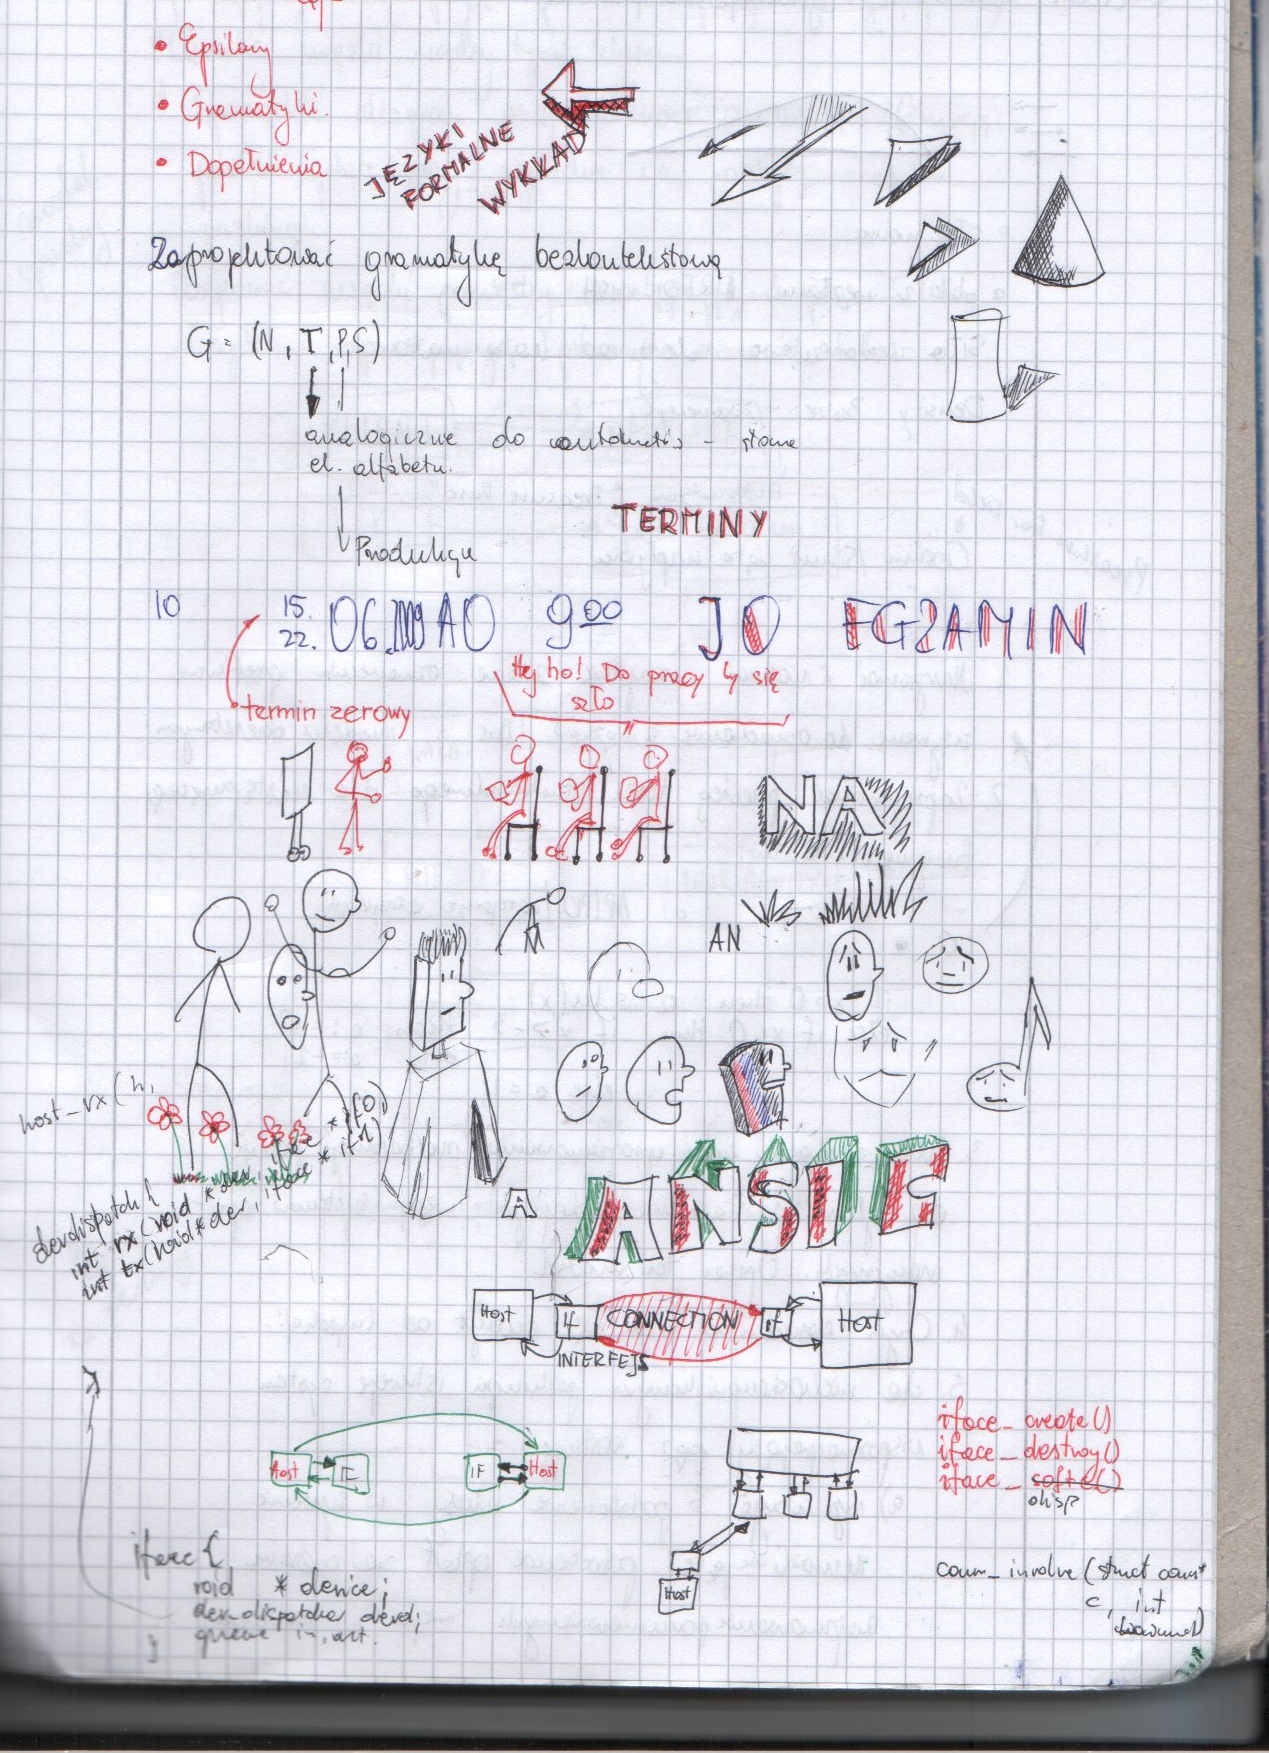 • Epsilony
• Gramatyki.
• Dopełnienia
JĘZYKI
FORMALNE
WYKŁAD
Zaprojektować gramatykę bezkontekstową
G = (N, T, P, S)
analogiczne do automatów - słowa
el. alfabetu.
Produkcje
TERMINY
10 15. 06. 2009 A0 9 00 JO EGZAMIN
22.
termin zerowy
Hej ho! Do pracy by się
szło
NA
AN
host_rx(h,
devdispatch {
int rx(void * dev, iface * ifo)
int tx(void * dev, iface * ifd)
A
AŃSIE
Host IF CONNECTION IF Host
INTERFEJS
Host IF IF Host
iface_create()
iface_destroy()
iface_
disp
Host
iface {
void * device;
dev_dispatcher devd;
queue in, out.
}
comm_involve (struct comm*
c, int